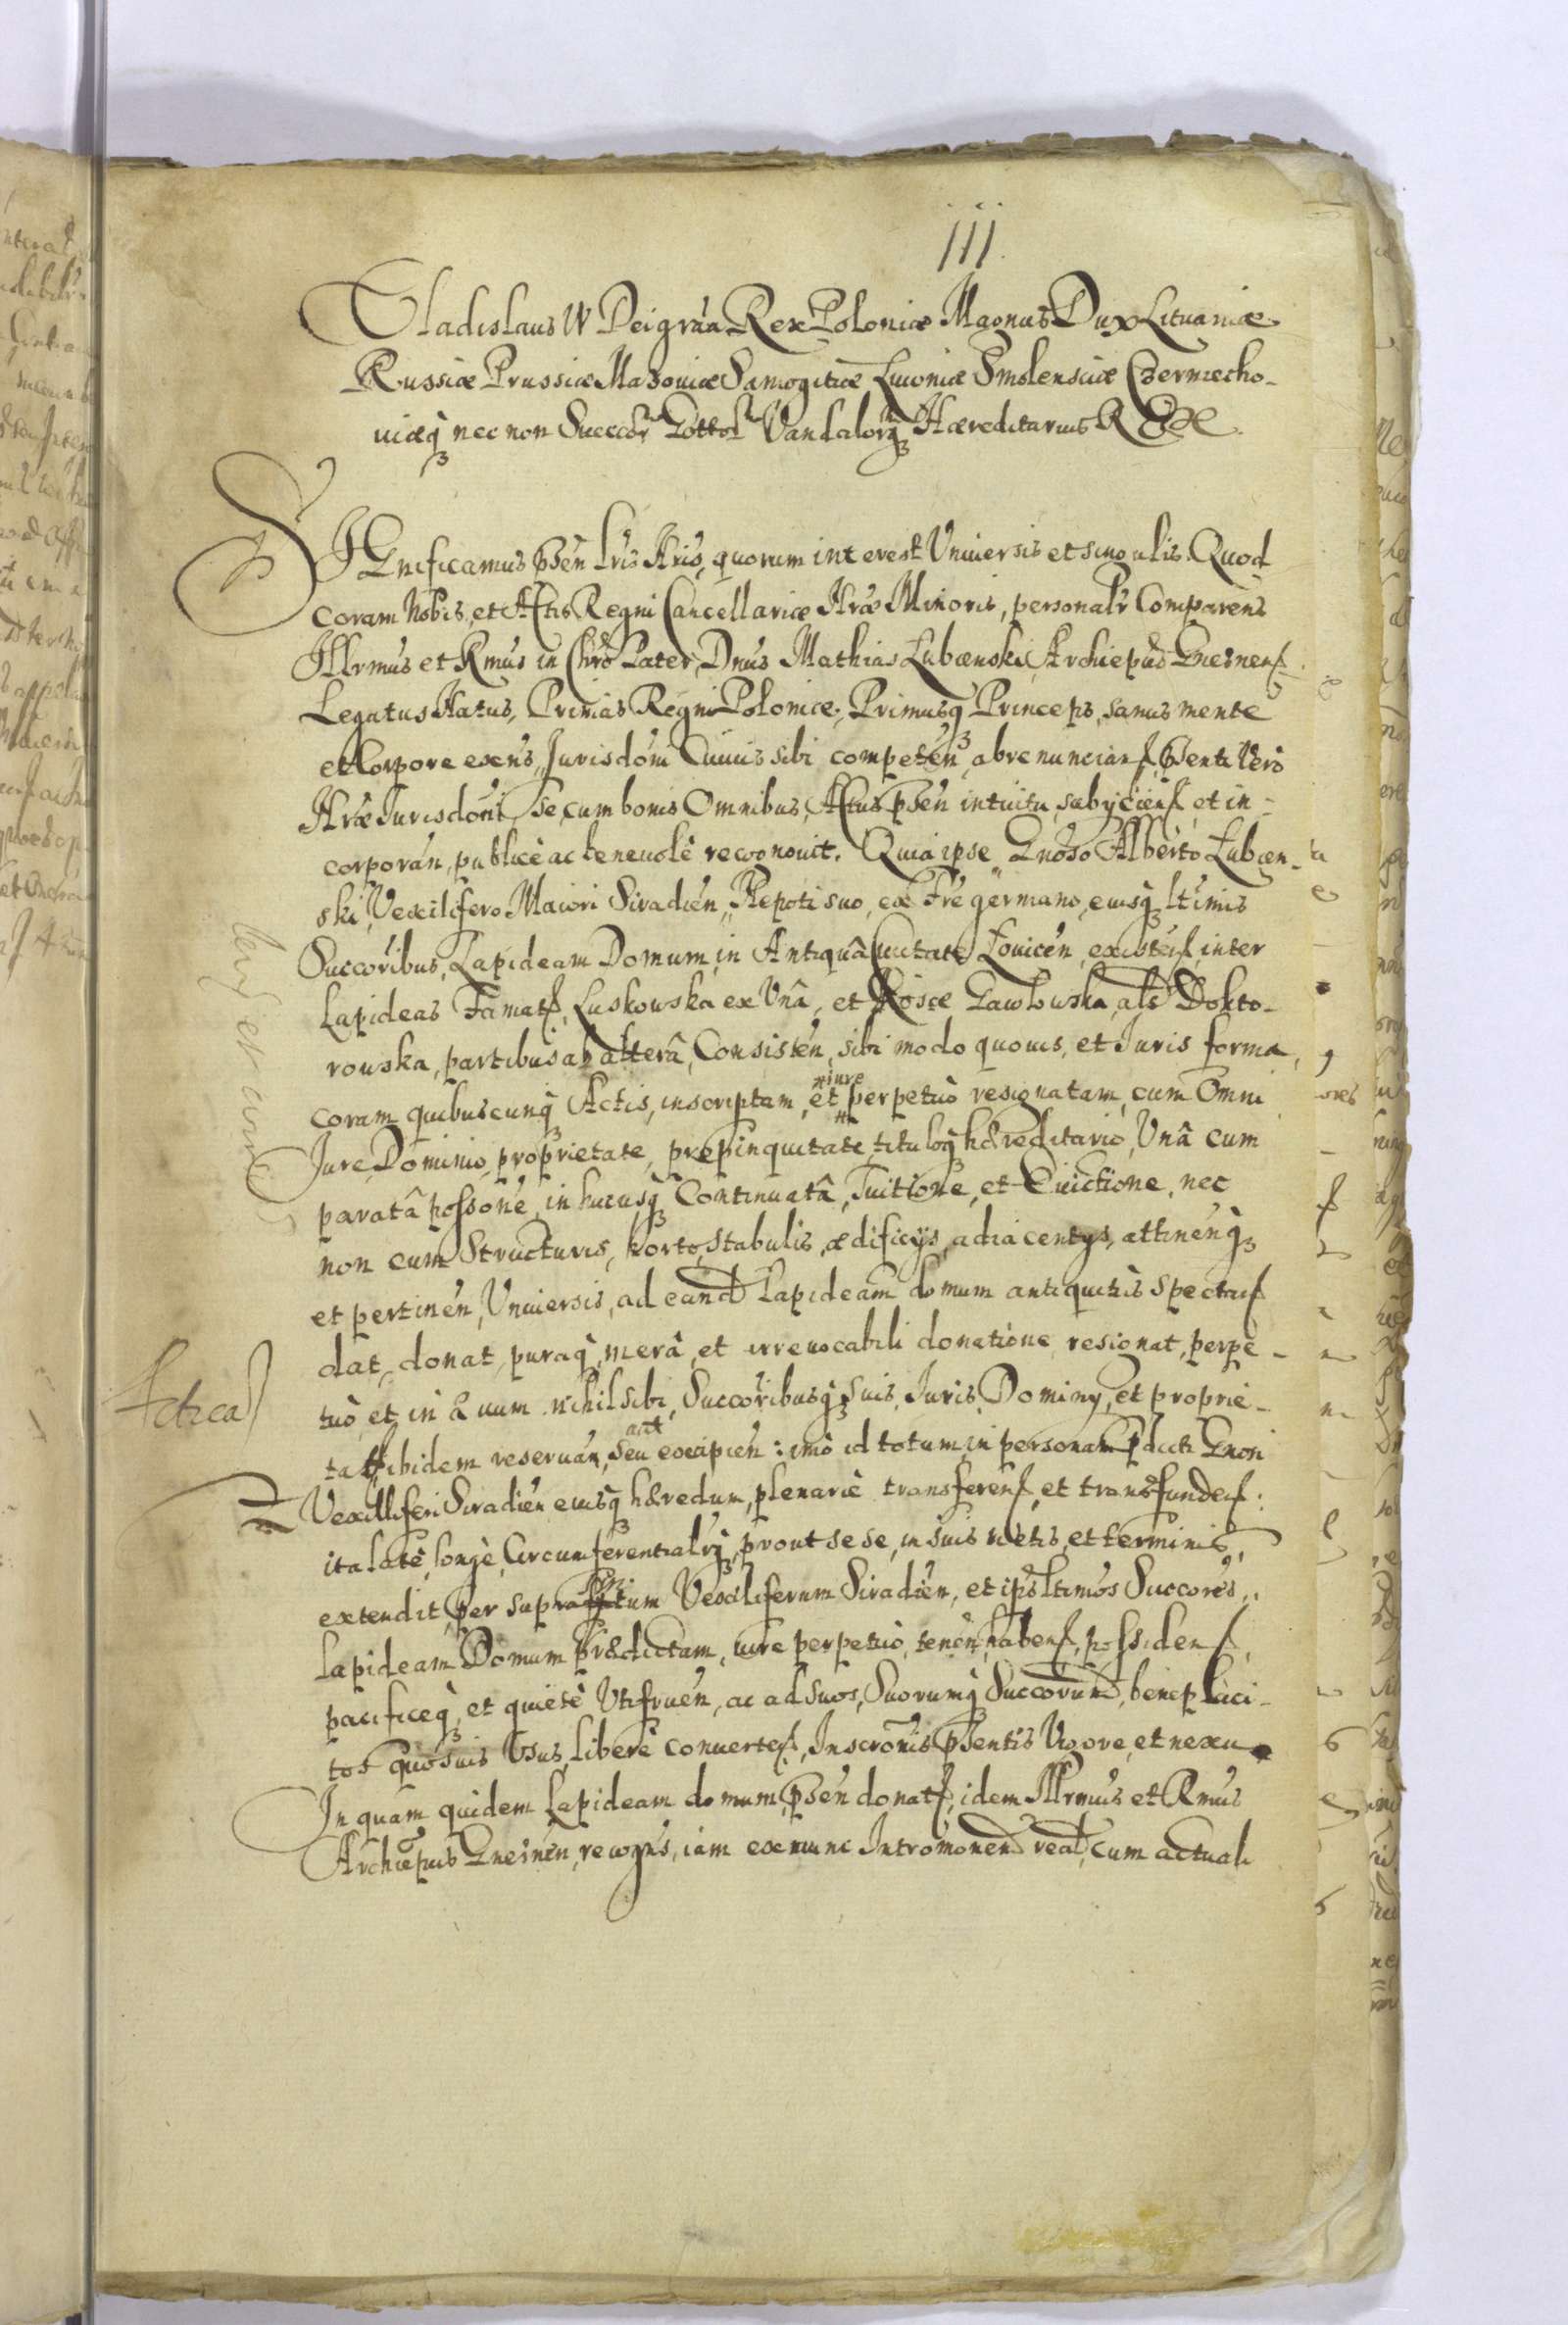 111.
Vladislaus IV Dei gr̃aa Rex Poloniæ Magnus Dux Lituaniæ
Russiæ Prussiæ Mazoviæ Samogitiæ Livoniæ Smolensciæ Czerniecho-
viæq́ʒ nec non Suecor̃ Gottor̃ Vandalorq́ʒ Hæreditarius REX.
SIGnificamus p̃sen̄ lr̃is Nr̃is, quorum interest Universis et singulis. Quod
coram Nobis, et Actis Regni Cancellariæ Nr̃æ Minoris, personalr̃ Comparens
Illr̃mus et Rm̃us in Chr̃o Pater, Dn̄us Mathias Lubænski, Archiep̃us Gnesnens̃
Legatus Natus, Primas Regni Poloniæ, Primusq́ʒ Princeps, sanus mente
et Corpore exn̄s, Jurisdōni Cuivis sibi competen̄, abrenuncians̃, p̃senti Verò
Nr̃æ Jurisdōni, se, cum bonis Omnibus, Actus p̃sen̄ intuitu, subyciens̃, et in-
corporan̄, publicè ac benevolè recognovit. Quia ipse Gnōso Alberto Lubæn-
ski, Vexilifero Maiori Siradien̄, Nepoti suo, ex Fr̃e germano, eiusq́ʒ lt̃imis
Succōribus, Lapideam Domum, in Antiquâ Civitate Lovicen̄, existen̄, inter
Lapideas Famat̃, Luskowska ex Unâ, et Rosæ Gawlowska, als̃ Dokto-
rowska, partibus ab alterâ, Consisten̄, sibi modo quovis, et Juris forma,
coram quibuscunq́ʒ Actis, inscriptam, et perpetuò resignatam, cum Omni
iure
Jure, Dominio, proprietate, propinquitate, tituloq́ʒ hæreditario, Unâ cum
paratâ possōne, in hucusq́ʒ Continuatâ, Tuitione, et Evictione, nec
non cum Structuris, horto, stabulis, ædificijs, adiacentys, attinenq́ʒ
et pertinen̄, Universis, ad eand̃ Lapideam domum antiquitùs spectan̄
dat, donat, puraq́ʒ, merâ, et irrevocabili donatione, resignat, perpe-
tuò, et in ævum. nihil sibi, Succōribusq́ʒ suis, Juris, Dominy, et proprie-
tat̃, ibidem reservan̄, seu excipien̄: imò id totum, in personam p̃dicti Gn̄osi
aut
Vexilliferi Siradien̄ eiusq́ʒ hæredum, plenariè transferen̄, et transfunden̄:
ita latè, longè, Circumferentialrq́ʒ, prout sese, in suis metis, et terminis,
extendit, per supra tum Vexiliferum Siradien̄, et ips̃ lt̃imos Succōres,
Lapideam Domum prædictam, iure perpetuò, tenen̄, haben̄, possiden̄,
pacificeq́ʒ, et quietè Utifruen̄, ac ad suos, Suorumq́ʒ Succōrum, beneplaci-
tos quosvis Usus, liberè converten̄, Inscrōnis p̃sentis Vigore, et nexu.
In quam quidem Lapideam domum, p̃sen̄ donat̃, idem Illr̃mus et Rm̃us
Archiep̃us Gnesnen̄, recogn̄s, iam ex nunc Intromōnem real̃, cum actuali